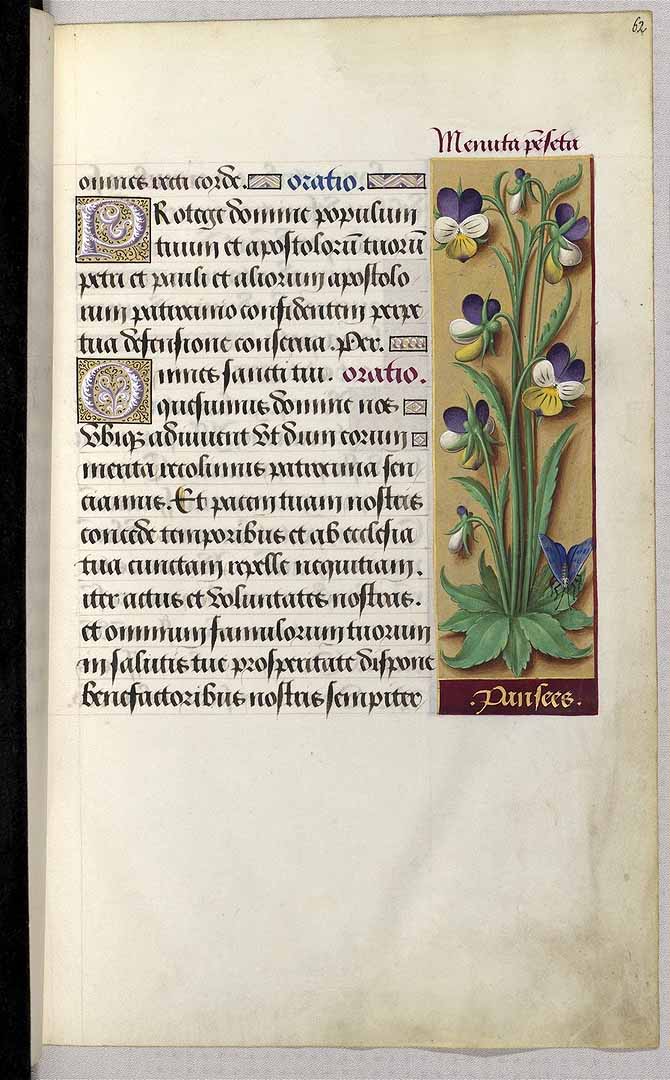 62
Menuta pēseta
omnes recti corde. oratio.
PRotege domine populum
tuum et apostolorū tuorū
petri et pauli et aliorum apostolo
rum patrocinio confidentem perpe
tua defensione conserua. Per.
Omnes sancti tui. oratio.
quesumus domine nos
Vbiqz adiuuent Vt dum eorum
merita recolimus patrocinia sen
ciamus. Et pacem tuam nostris
concede temporibus et ab ecclesia
tua cunctam repelle nequitiam.
iter actus et Voluntates nostras.
et omnium famulorum tuorum
in salutis tue prosperitate dispone
benefactoribus nostris sempiter
.Pansees.